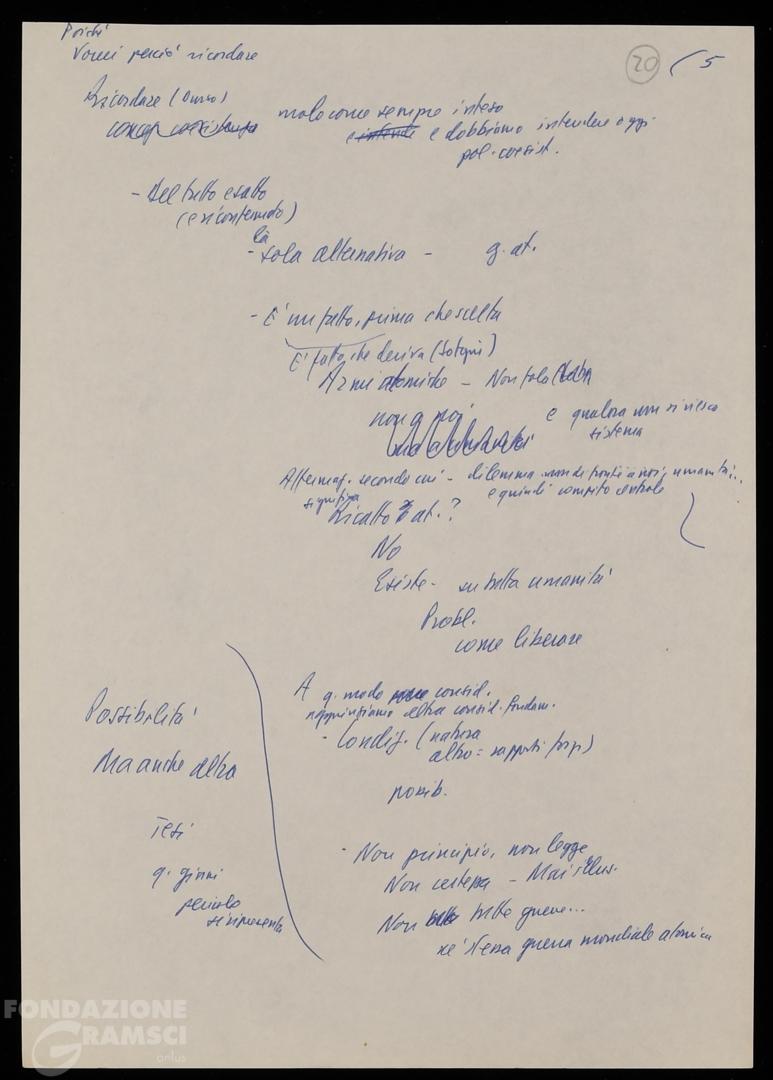 Poiché
Vorrei perciò ricordare
20
5
Ricordare (
modo come sempre inteso
e dobbiamo intendere oggi
pol. coesist.
- Del tutto esatto
(e riconfermato)
la
- sola alternativa - g. at.
- E' un fatto, prima che scelta
E' fatto che deriva (
Armi atomiche - Non solo
non
e qualora non si riesca
sistema
Affermaz. secondo cui - dilemma umanità..
e quindi compito centrale
significa
Ricatto at.?
No
Esiste - su tutta umanità
Probl.
come liberare
A q. modo consid.
aggiungiamo altra consid. fondam.
- Condiz. (natura
altro = rapporti forze)
possib.
Possibilità
Ma anche altra
Tesi
q. giorni
pericolo
si ripresenta
- Non principio, non legge
Non certezza - Mai illus.
Non tutte guerre...
né stessa guerra mondiale atomica
FONDAZIONE
GRAMSCI
onlus